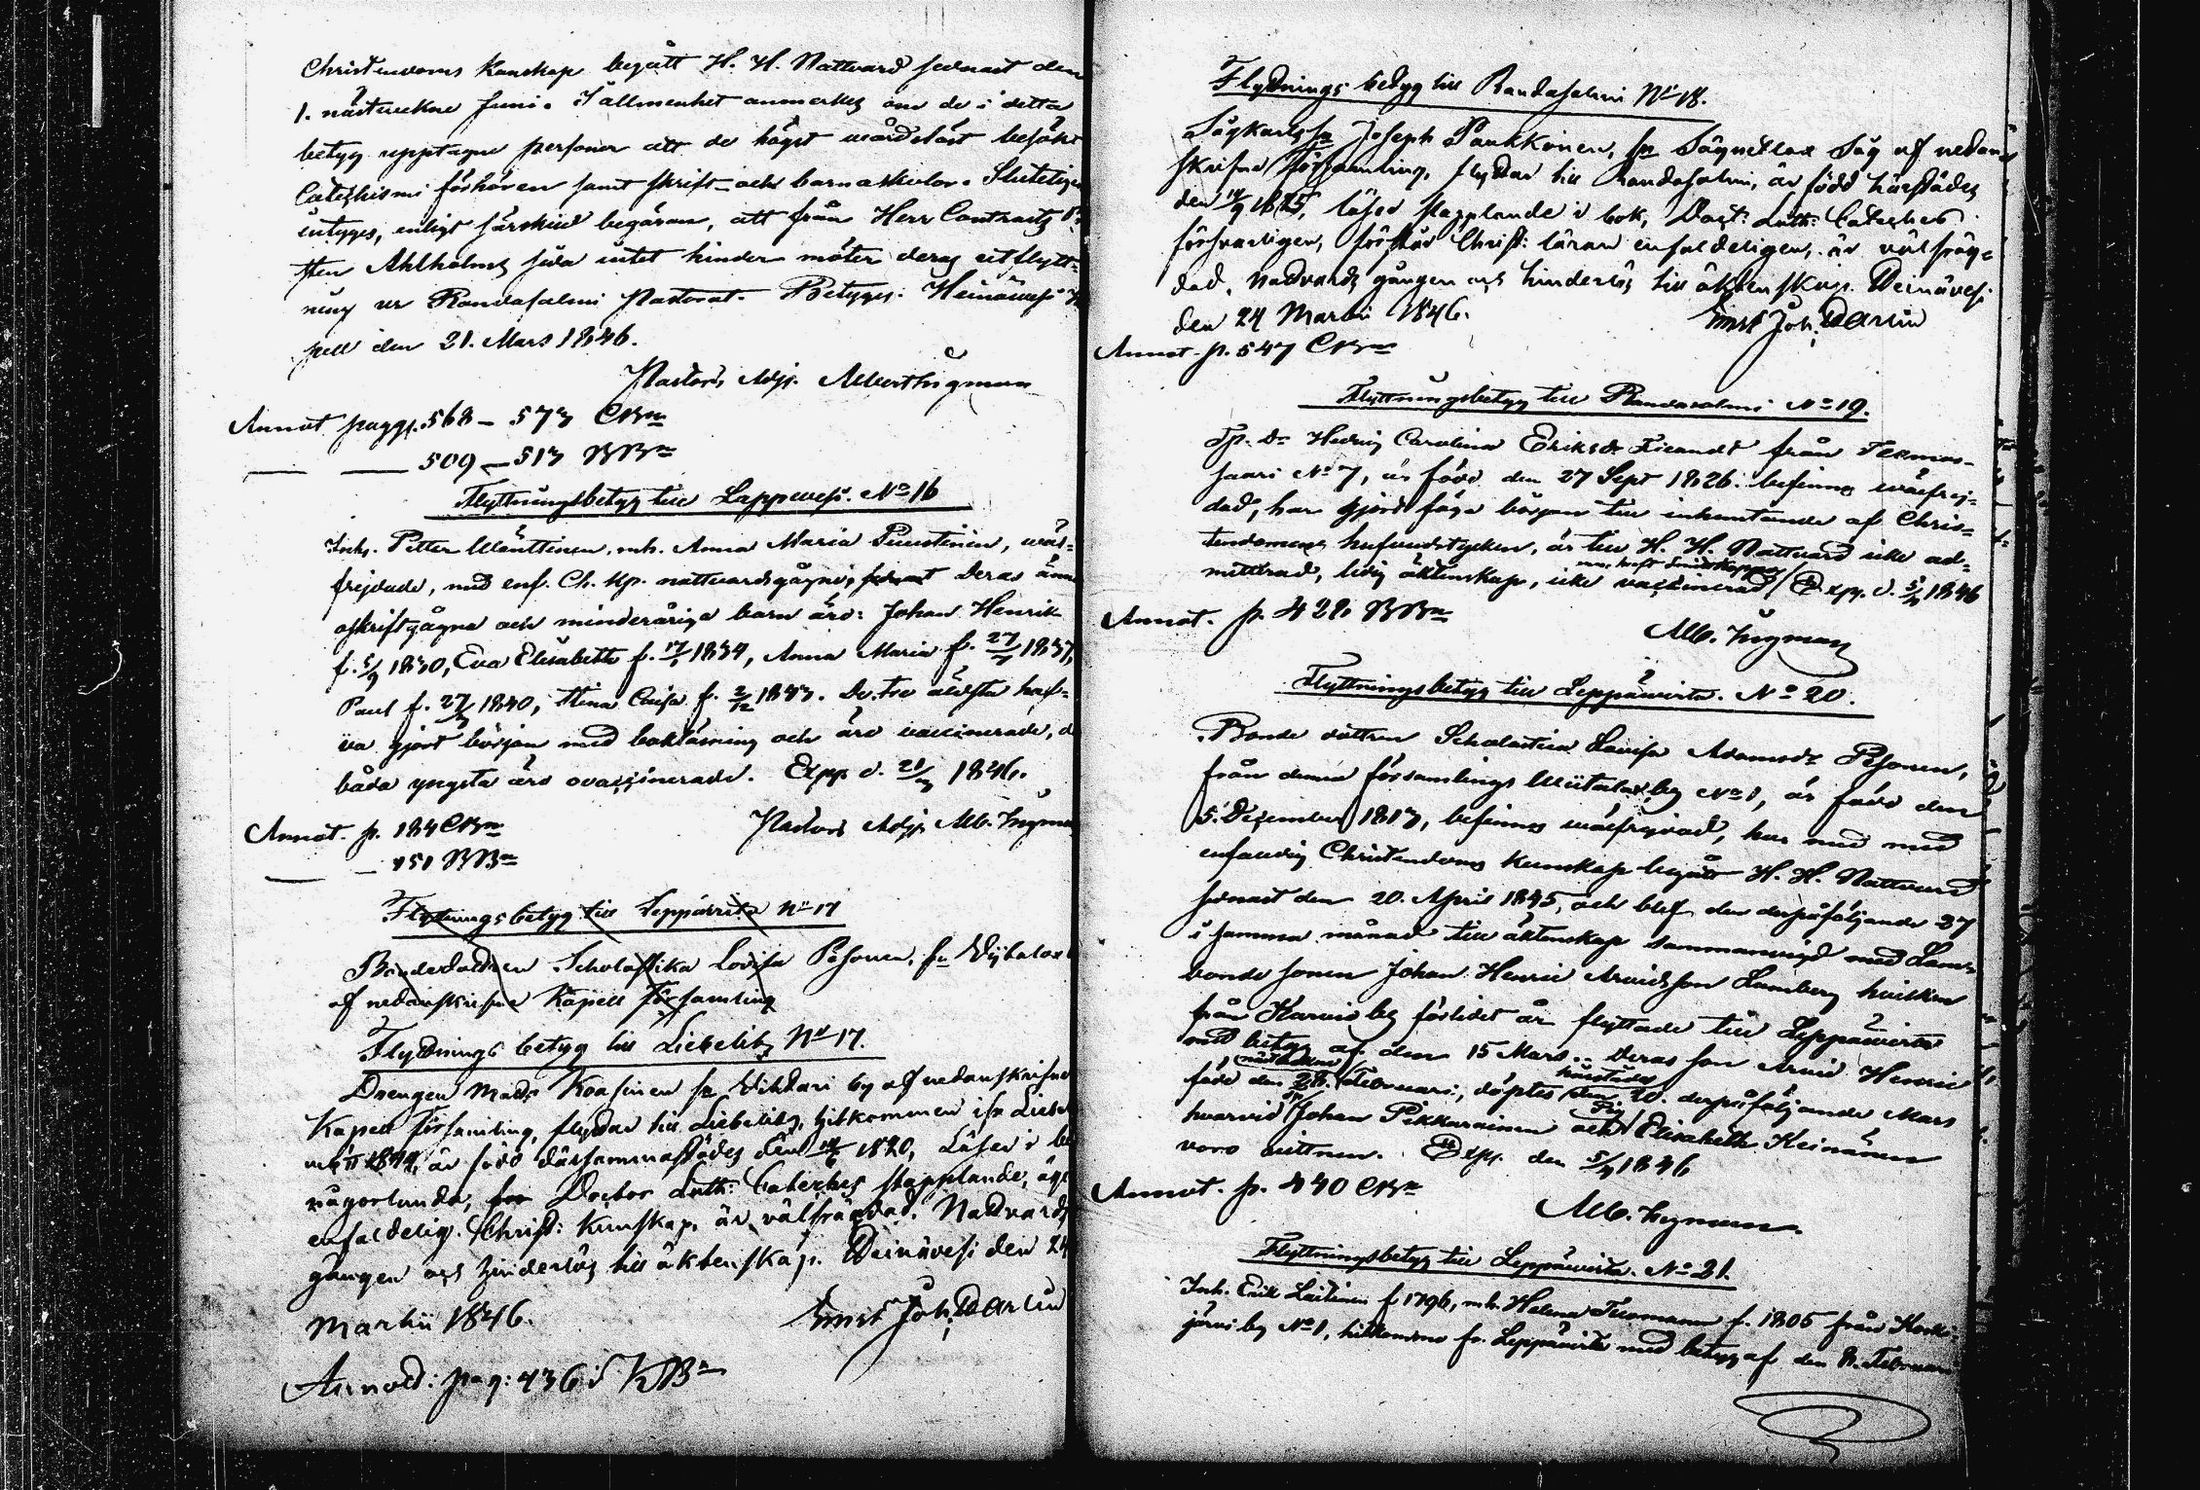 Christendoms kunskap begått H. H. Nattvard sednast den
1. nästvekne Juni. I allmenhet anmerkes om de i detta
betyg upptagne personer att de högst vårdslöst besökt
Catechismi förhören samt skrift- och barnaskolor. Slutligen
intyges, enligt särskild begäran, att från Herr Contracts
Ahlholms sida intet hinder möter deras utflytt-
ning ur Randasalmi Pastorat. Betygar. Heinävesi
pell den 21. Mars 1846.
Pastors Adj. Albert Ingman
Annot pagg. 568 - 573 CBn
509 - 513 BBn
Flyttningsbetyg till Lappvesi. No 16
Inhs. Petter Mänttinen, mh. Anna Maria Puustinen, väl-
frejdade, med enf. Ch. kp. nattvardsgågne, samt Deras ännu
oskriftgågna och minderåriga barn äro: Johan Henrik
f. 5/9 1830, Eva Elisabeth f. 17/1 1834, Anna Maria f. 27/7 1837,
Paul f. 27/3 1840, Stina Caisa f. 2/12 1843. De tre äldsta haf-
va gjort början med bokläsning och äro vaccinerade, de
båda yngsta äro ovaccinerade. Exp d. 21/3 1846.
Pastors Adj. Alb. Ingman
Annot. p. 184 CBn
151 BBn
Flyttningsbetyg till Leppävirta No 17
Bondedottren Scholastika Lovisa Pesonen, fr
af nedanskrifne Kapell församling
Flyttnings betyg till Libelitz No 17.
Drengen Mats Koasinen fr Vihtari by af nedanskrifne
Kapell församling, flyttar till Libelitz, hitkommen ifr Libe
är född därsammastädes den 1820, Läser i bok
någorlunda, Doctor Luth: Cateches stapplande, äger
enfaldelig Christ: kunskap, är välfrägdad. Nattvards
gången och hinderlös till äktenskap. Heinävesi den 24
Martii 1846. Ernst Joh. Darlin
Annoted: pag: 436 i KBn
Flyttnings betyg till Randasalmi No 18.
Sågkarlss Joseph Paukkonen, fr Sågnellas Såg af nedan
skrifne församling, flyttar till Randasalmi, är född härstädes
den 1825, läser stapplande i bok, Doct: Luth: Cateches
försvarligen, förstår Christ: läran enfaldeligen, är välfräg-
dad, nattvards gången och hinderlös till äktenskap. Heinävesi
den 24 Martii 1846. Ernst Joh. Darlin
Annot. p. 547 CBn
Flyttningsbetyg till Randasalmi No 19.
Tp. Dr Hedvig Carolina Eriksdr Ticandt från Termo-
saari No 7, är född den 27 Sept 1826. befinns välfrej-
dad, har gjort föga början till inhemtande af Chris-
tendomens hufvudstycken, är till H. H. Nattvard icke ad-
mitterad, ledig äktenskap, icke vaccinerad / Exp. d. 1846
men haft Smittkoppor
Annot. p. 428 BBn
Alb. Ingman
Flyttningsbetyg till Leppävirta. No 20.
Bonde dottren Scholastica Lovisa Adamsdr Pesonen,
från denna församlings Viitalax by No 1, är född den
5. December 1813, befinns välfrejdad, har med med
enfaldig Christendoms kunskap begått H. H. Nattvard
sednast den 20. April 1845, och blef den derpåföljande 27
i samma månad till äktenskap sammanvigd med Land-
bonde sonen Johan Henric Arvidsson Lamberg hvilken
från Karvio by förlidet år flyttade till Leppävirta
med betyg af den 15 Mars. Deras son Arvid Henric
född den nästvekne 28. Februari, döptes härstädes den 10. derpåföljande Mars
hvarvid Johan Pikkarainen och Elisabeth Keinänen
voro vittnen. Exp. den 1846
Annot. p. 440 CBn
Alb. Ingman
Flyttningsbetyg till Leppävirta. No 21.
Inh. Erik Laitinen f 1796, mh. Helena Tuomann f. 1805 från Kork
järvi by No 1, hitkomne fr. Leppävirta med betyg af den 8. Februari